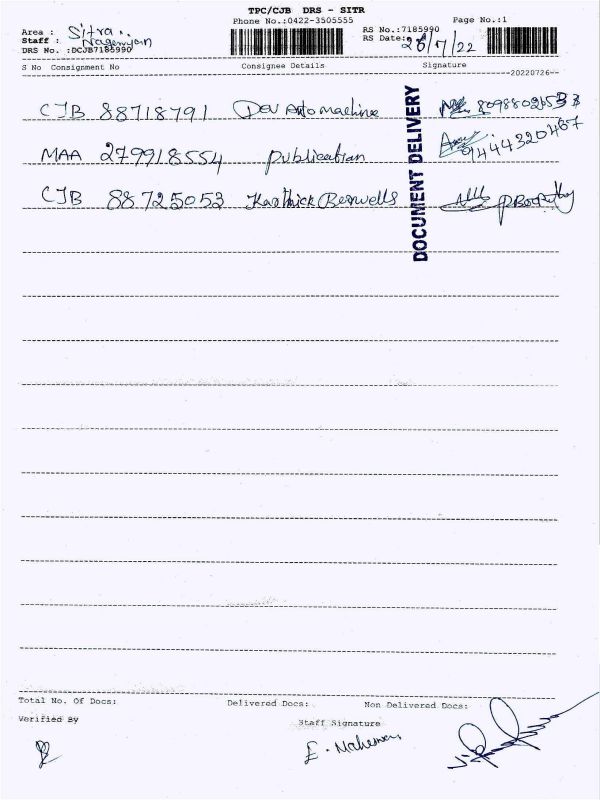 TPC/CJB DRS - SITR
Phone No.:0422-3505555 Page No.:1
Area : Sitra
Staff :
DRS No. :DCJB7185990
RS No.:7185990
RS Date: 26/7/22
S No Consignment No Consignee Details Signature
20220726
CJB 88718791 Dev Auto machine 8098802653
MAA 279918554 Publication 9444320467
CJB 88725053 Karthick Borewells
DOCUMENT DELIVERY
Total No. Of Docs: Delivered Docs: Non Delivered Docs:
Verified By Staff Signature